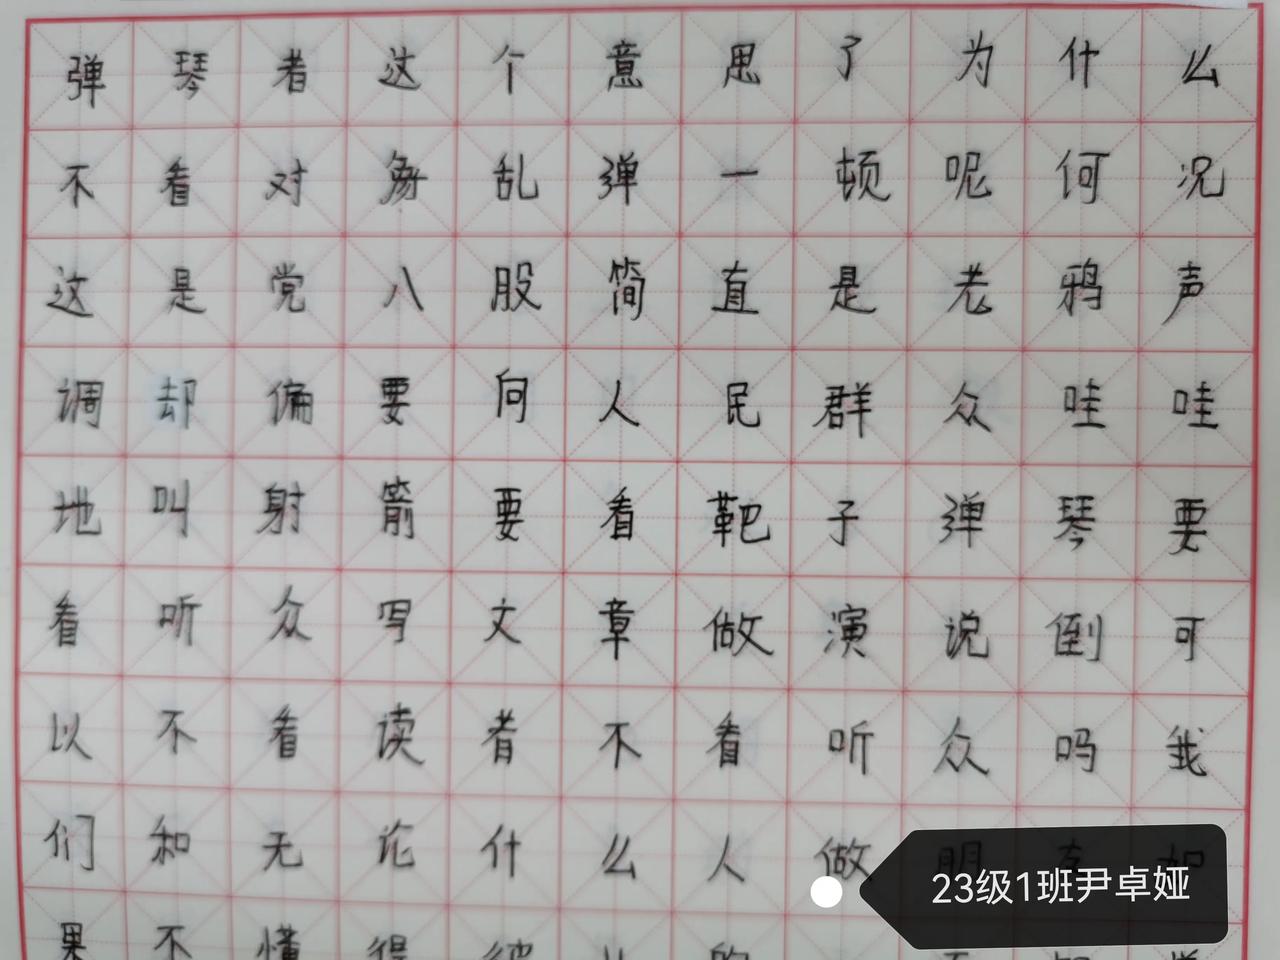 弹琴者这个意思了为什么
不看对象乱弹一顿呢何况
这是党八股简直是老鸦声
调却偏要向人民群众哇哇
地叫射箭要看靶子弹琴要
看听众写文章做演说倒可
以不看读者不看听众吗我
们和无论什么人做朋友如
果不懂得彼
23级1班尹卓娅